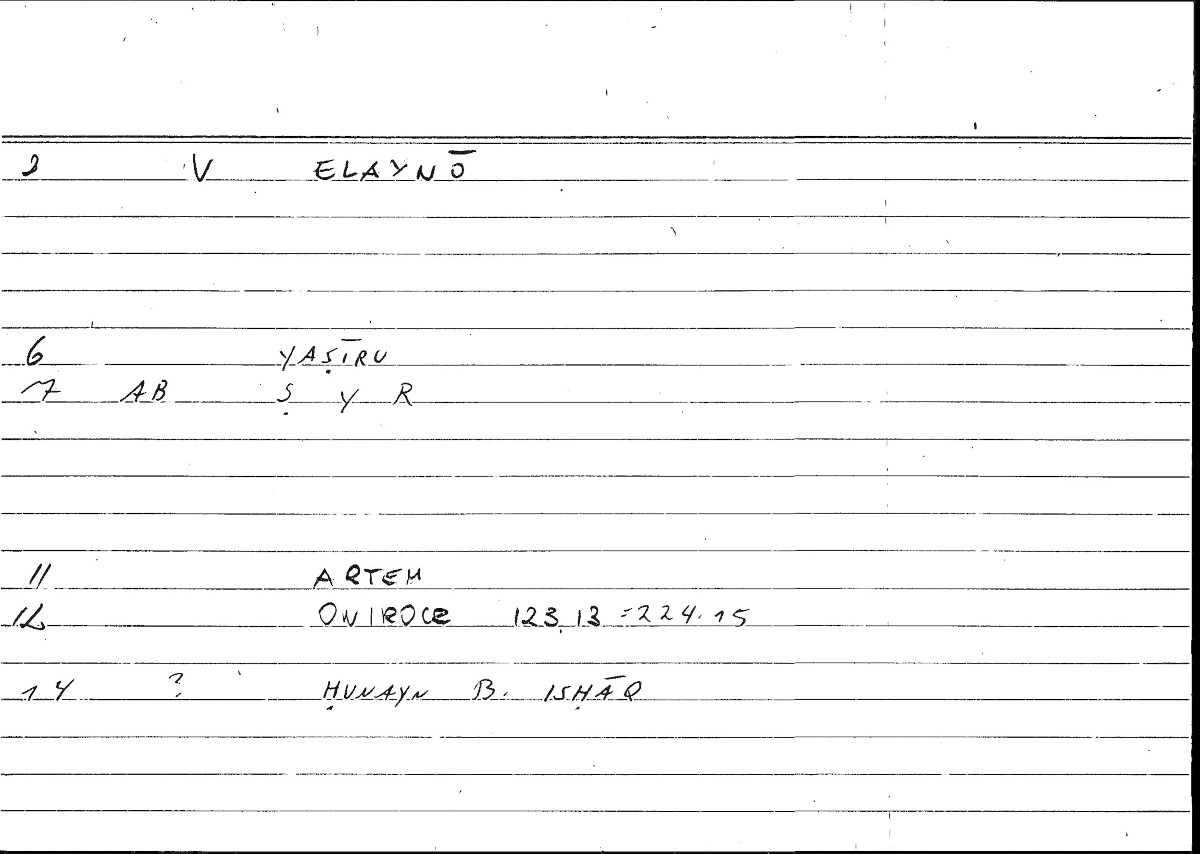 3 V ELAYNŌ
6 YAṢĪRU
7 AB Ṣ Y R
11 ARTEM
12 ONIROCR 123,13 = 224.15
14 ? ḤUNAYN B. ISḤĀQ